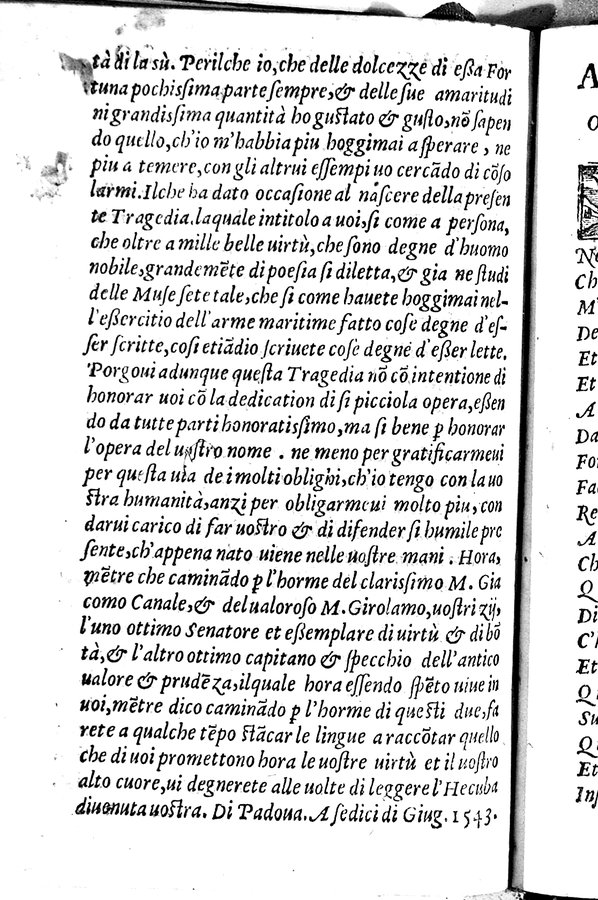 tà di la sù. Perilche io, che delle dolcezze di eßa For
tuna pochissima parte sempre, & delle sue amaritudi
ni grandissima quantità ho gustato & gusto, nõ sapen
do quello, ch'io m'habbia piu hoggimai a sperare, ne
piu a temere, con gli altrui essempi uo cercãdo di cõso
larmi. Ilche ha dato occasione al nascere della presen
te Tragedia. laquale intitolo a uoi, si come a persona,
che oltre a mille belle uirtù, che sono degne d'huomo
nobile, grandemẽte di poesia si diletta, & gia ne studi
delle Muse sete tale, che si come hauete hoggimai nel-
l'eßercitio dell'arme maritime fatto cose degne d'es-
ser scritte, cosi etiãdio scriuete cose degne d'eßer lette.
Porgoui adunque questa Tragedia nõ cõ intentione di
honorar uoi cõ la dedication di si picciola opera, eßen
do da tutte parti honoratissimo, ma si bene ꝑ honorar
l'opera del uostro nome. ne meno per gratificarmeui
per questa uia de i molti oblighi, ch'io tengo con la uo
stra humanità, anzi per obligarmeui molto piu, con
darui carico di far uostro & di difender si humile pre
sente, ch'appena nato uiene nelle uostre mani. Hora,
mẽtre che caminãdo ꝑ l'horme del clarissimo M. Gia
como Canale, & del ualoroso M. Girolamo, uostri zij,
l'uno ottimo Senatore et eßemplare di uirtù & di bõ
tà, & l'altro ottimo capitano & specchio dell'antico
ualore & prudẽza, ilquale hora essendo spẽto uiue in
uoi, mẽtre dico caminãdo ꝑ l'horme di questi due, fa
rete a qualche tẽpo stãcar le lingue a raccõtar quello
che di uoi promettono hora le uostre uirtù et il uostro
alto cuore, ui degnerete alle uolte di leggere l'Hecuba
diuenuta uostra. Di Padoua. A sedici di Giug. 1543.
A
O
No
Ch
M'
De
Et
Et
A
Da
For
Fa
Re
A
Ch
Q
Di
C'h
Et
Qu
Su
Qu
Et
Ins